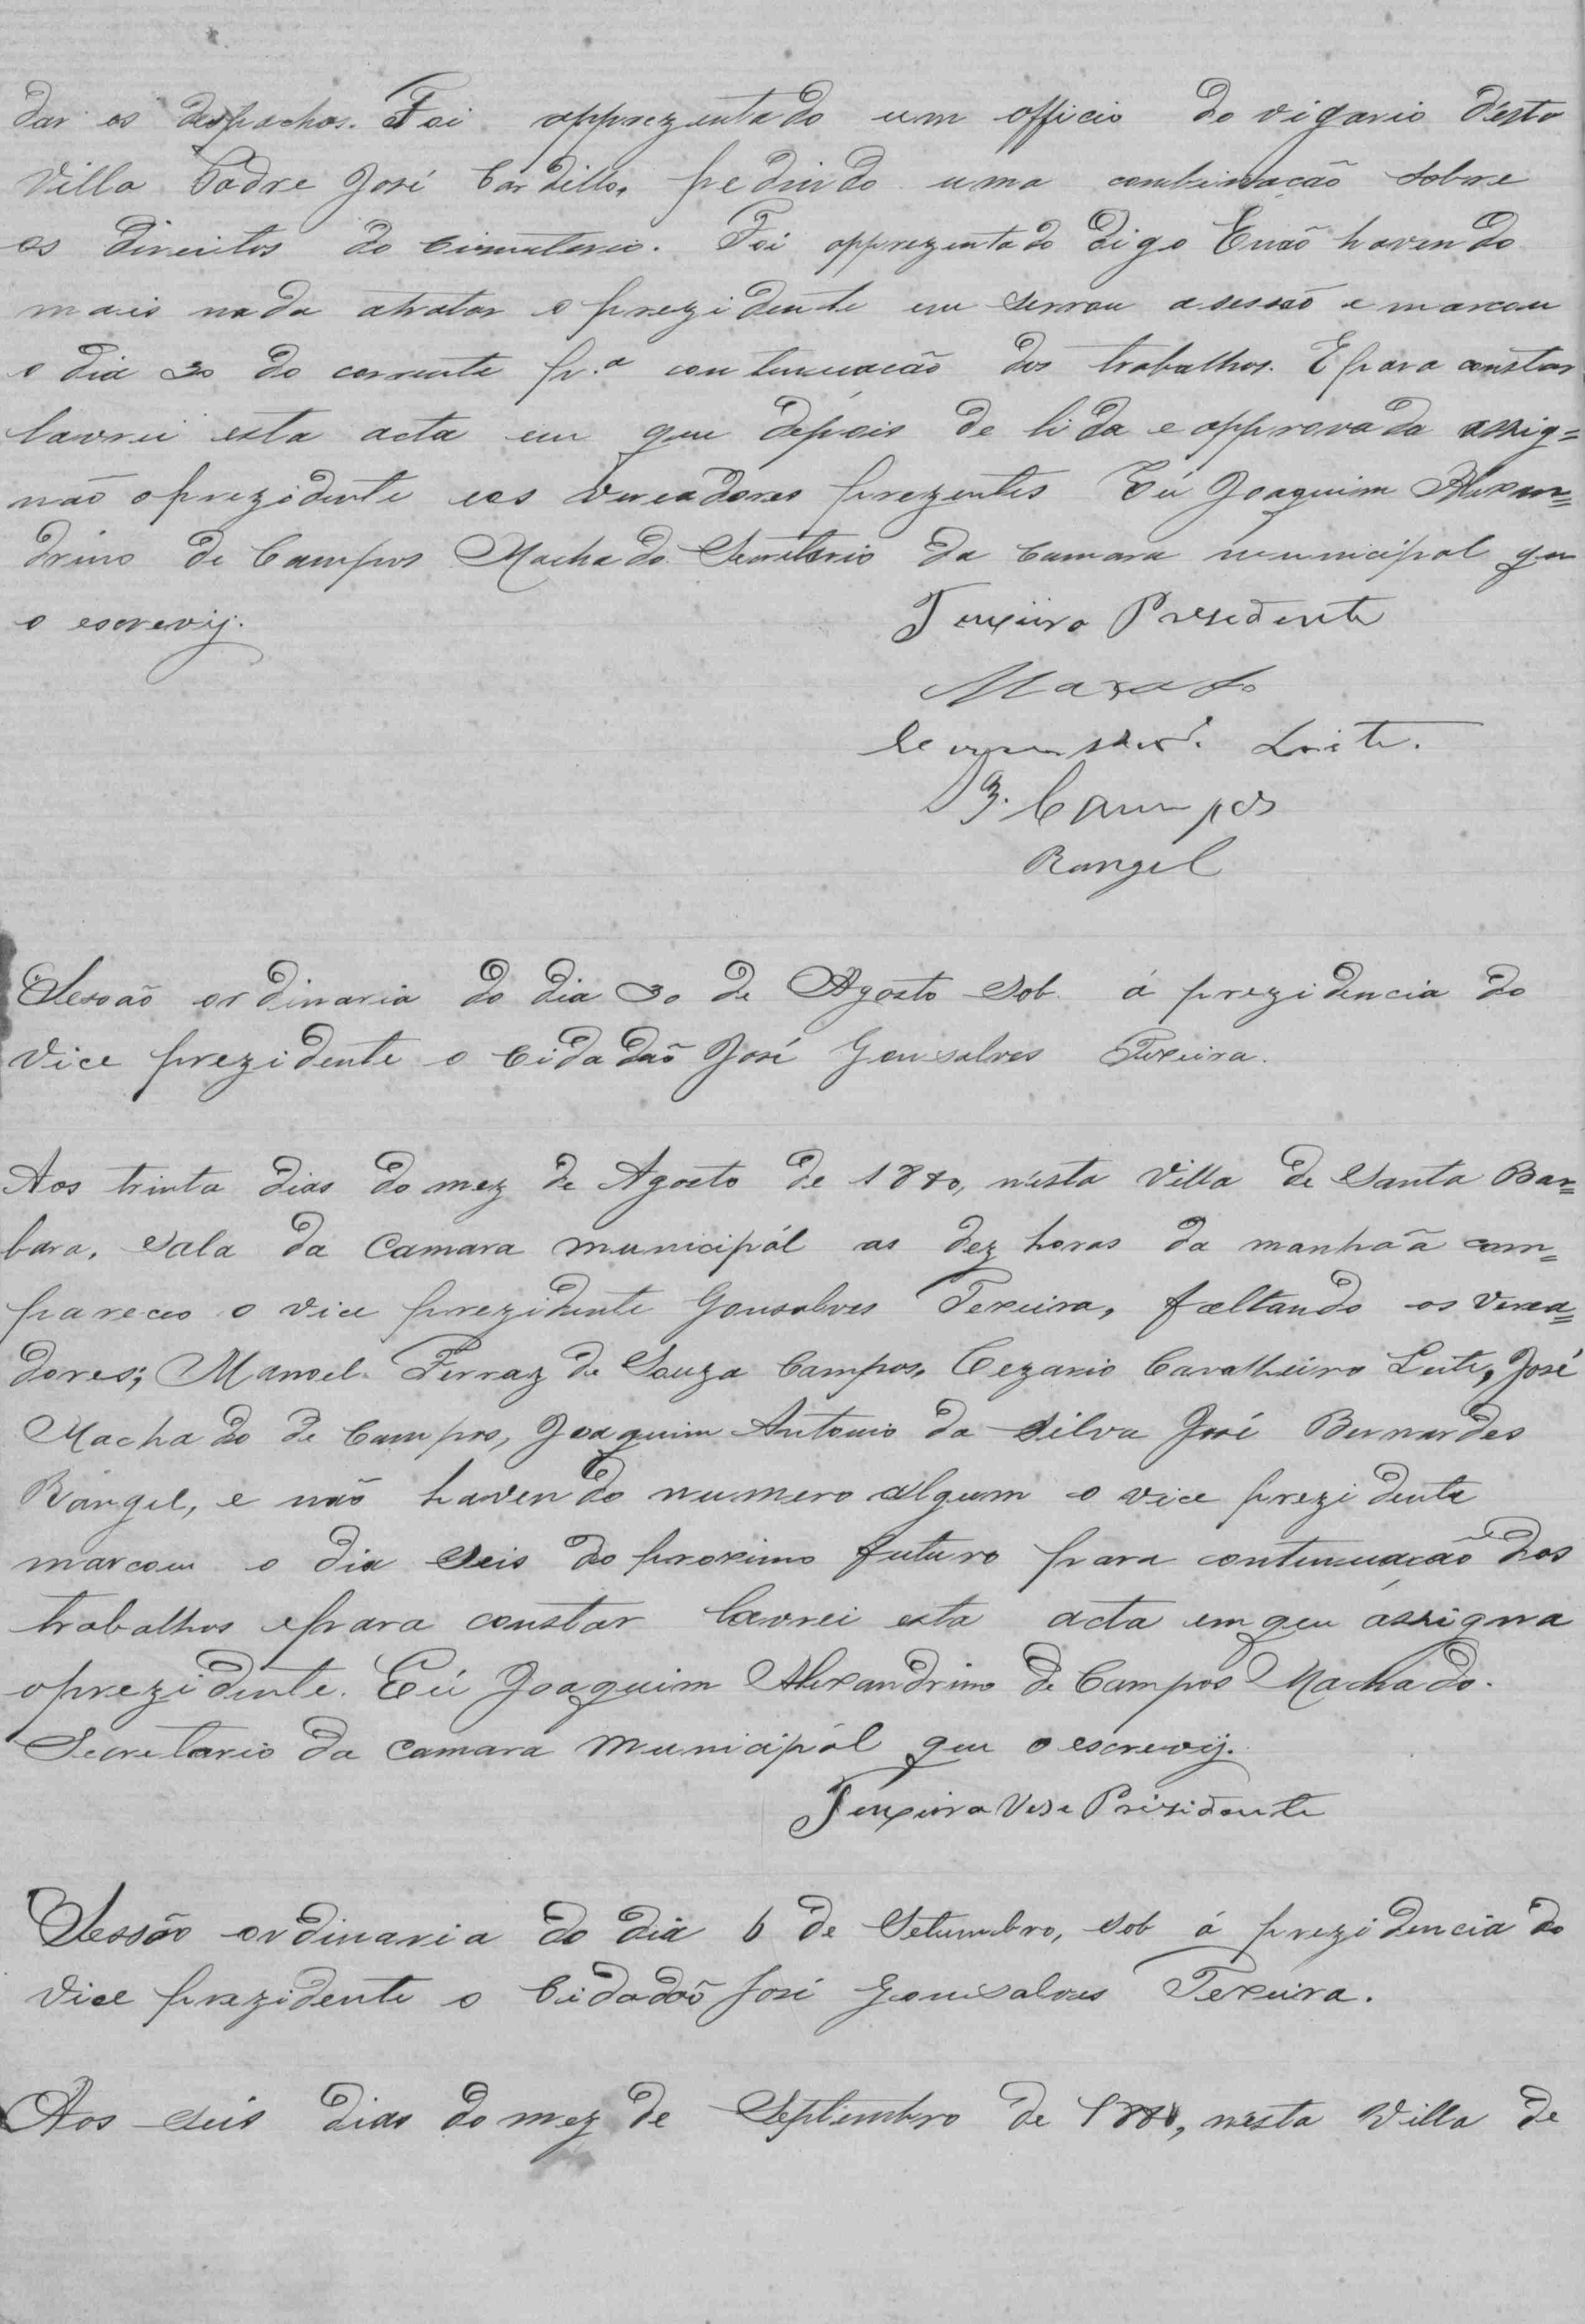 dar os despachos. Foi apprezentado um officio do vigario d'esta
Villa Padre José Cardillo, pedindo uma combinação sobre
os direitos do cimiterio. Foi apprezentado digo E não havendo
mais nada atratar o prezidente em serrou a sessão e marcou
o dia 30 do corrente pr.a contenuação dos trabalhos. E para constar
lavrei esta acta em que depois de lida e approvada assig=
não o prezidente e os vereadores prezentes Eú Joaquim Alexan=
drino de Campos Machado Secretario da Camara municipal que
o escrevij.
Teixeira Presedente
Maxado
Leite.
Campos
Rangel
Sessão ordinaria do dia 30 de Agosto sob á prezidencia do
Vice prezidente o Cidadão José Gonsalves Texeira.
Aos trinta dias do mez de Agosto de 1880, n'esta Villa de Santa Bar=
bara, sala da Camara municipál as dez horas da manhãa com=
pareceo o vice prezidente Gonsalves Texeira, faltando os verea=
dores; Manoel Ferraz de Souza Campos, Cezario Cavalheiro Leite, José
Machado de Campos, Joaquim Antonio da Silva José Bernardes
Rangel, e não havendo numero algum o vice prezidente
marcou o dia Seis do proximo futuro para contenuação dos
trabalhos e para constar lavrei esta acta em que assigna
o prezidente. Eú Joaquim Alexandrino de Campos Machado.
Secretario da Camara Municipál que o escrevij.
Teixeira Vise Prisidente
Sessão ordinaria do dia 6 de Setembro, sob á prezidencia do
Vice prezidente o Cidadão José Gonsalves Texeira.
Aos seis dias do mez de Septembro de 1880, n'esta Villa de